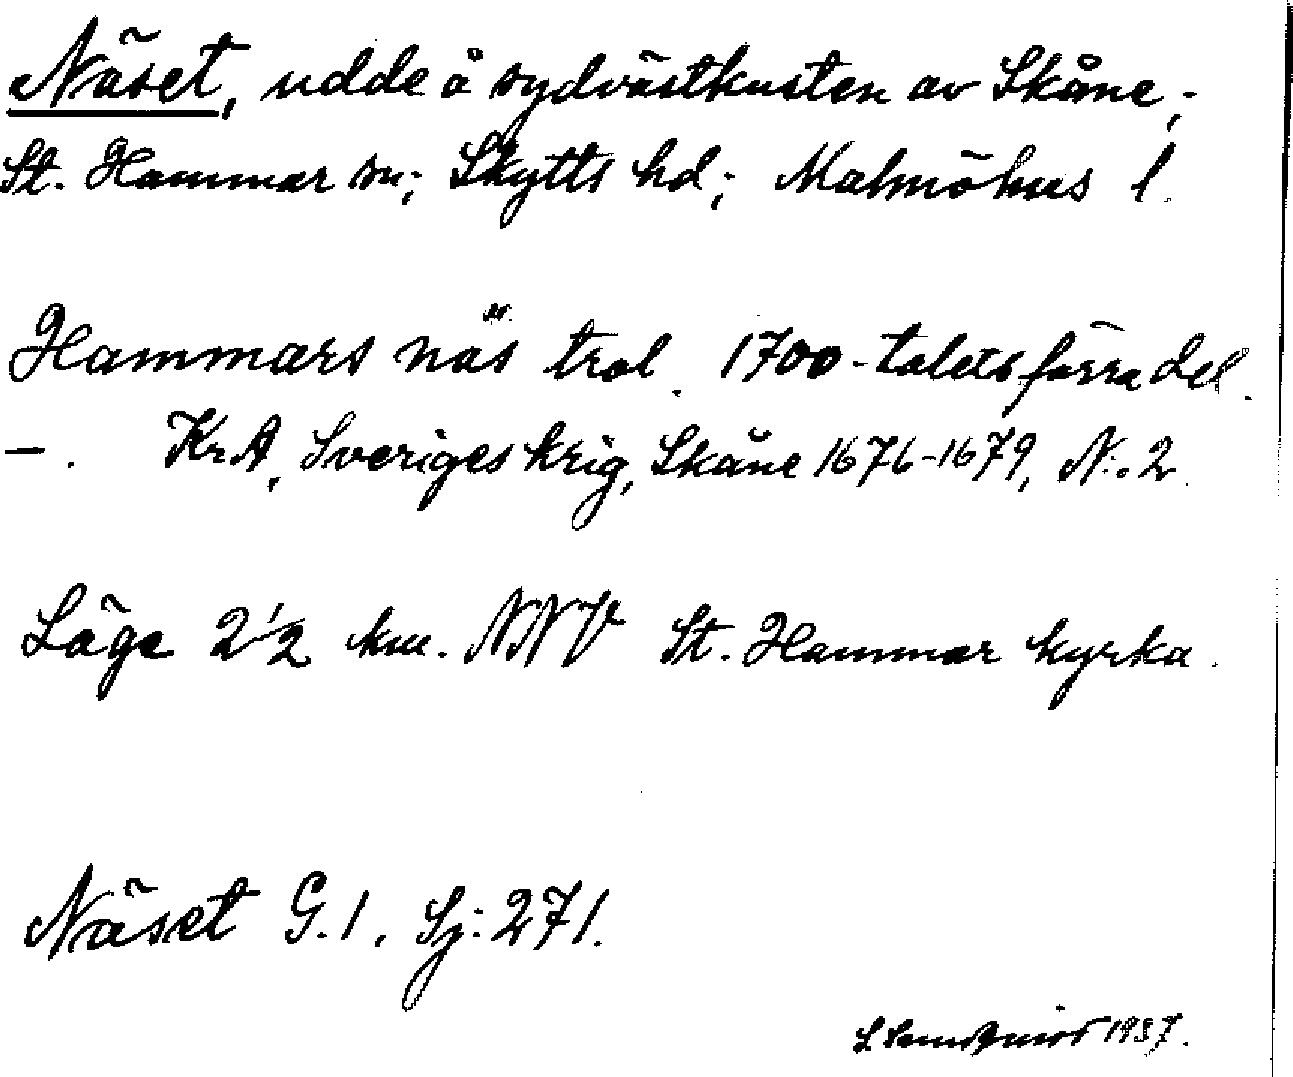 Näset, udde å sydvästkusten av Skåne;
St. Hammar sn; Skytts hd; Malmöhus l.
Hammars näs trol. 1700-talets förra del.
—. KrA, Sveriges krig, Skåne 1676-1679, N:o 2.
Läge 2 1/2 km. NNV St. Hammar kyrka.
Näset G.1. Sj: 271.
1937.